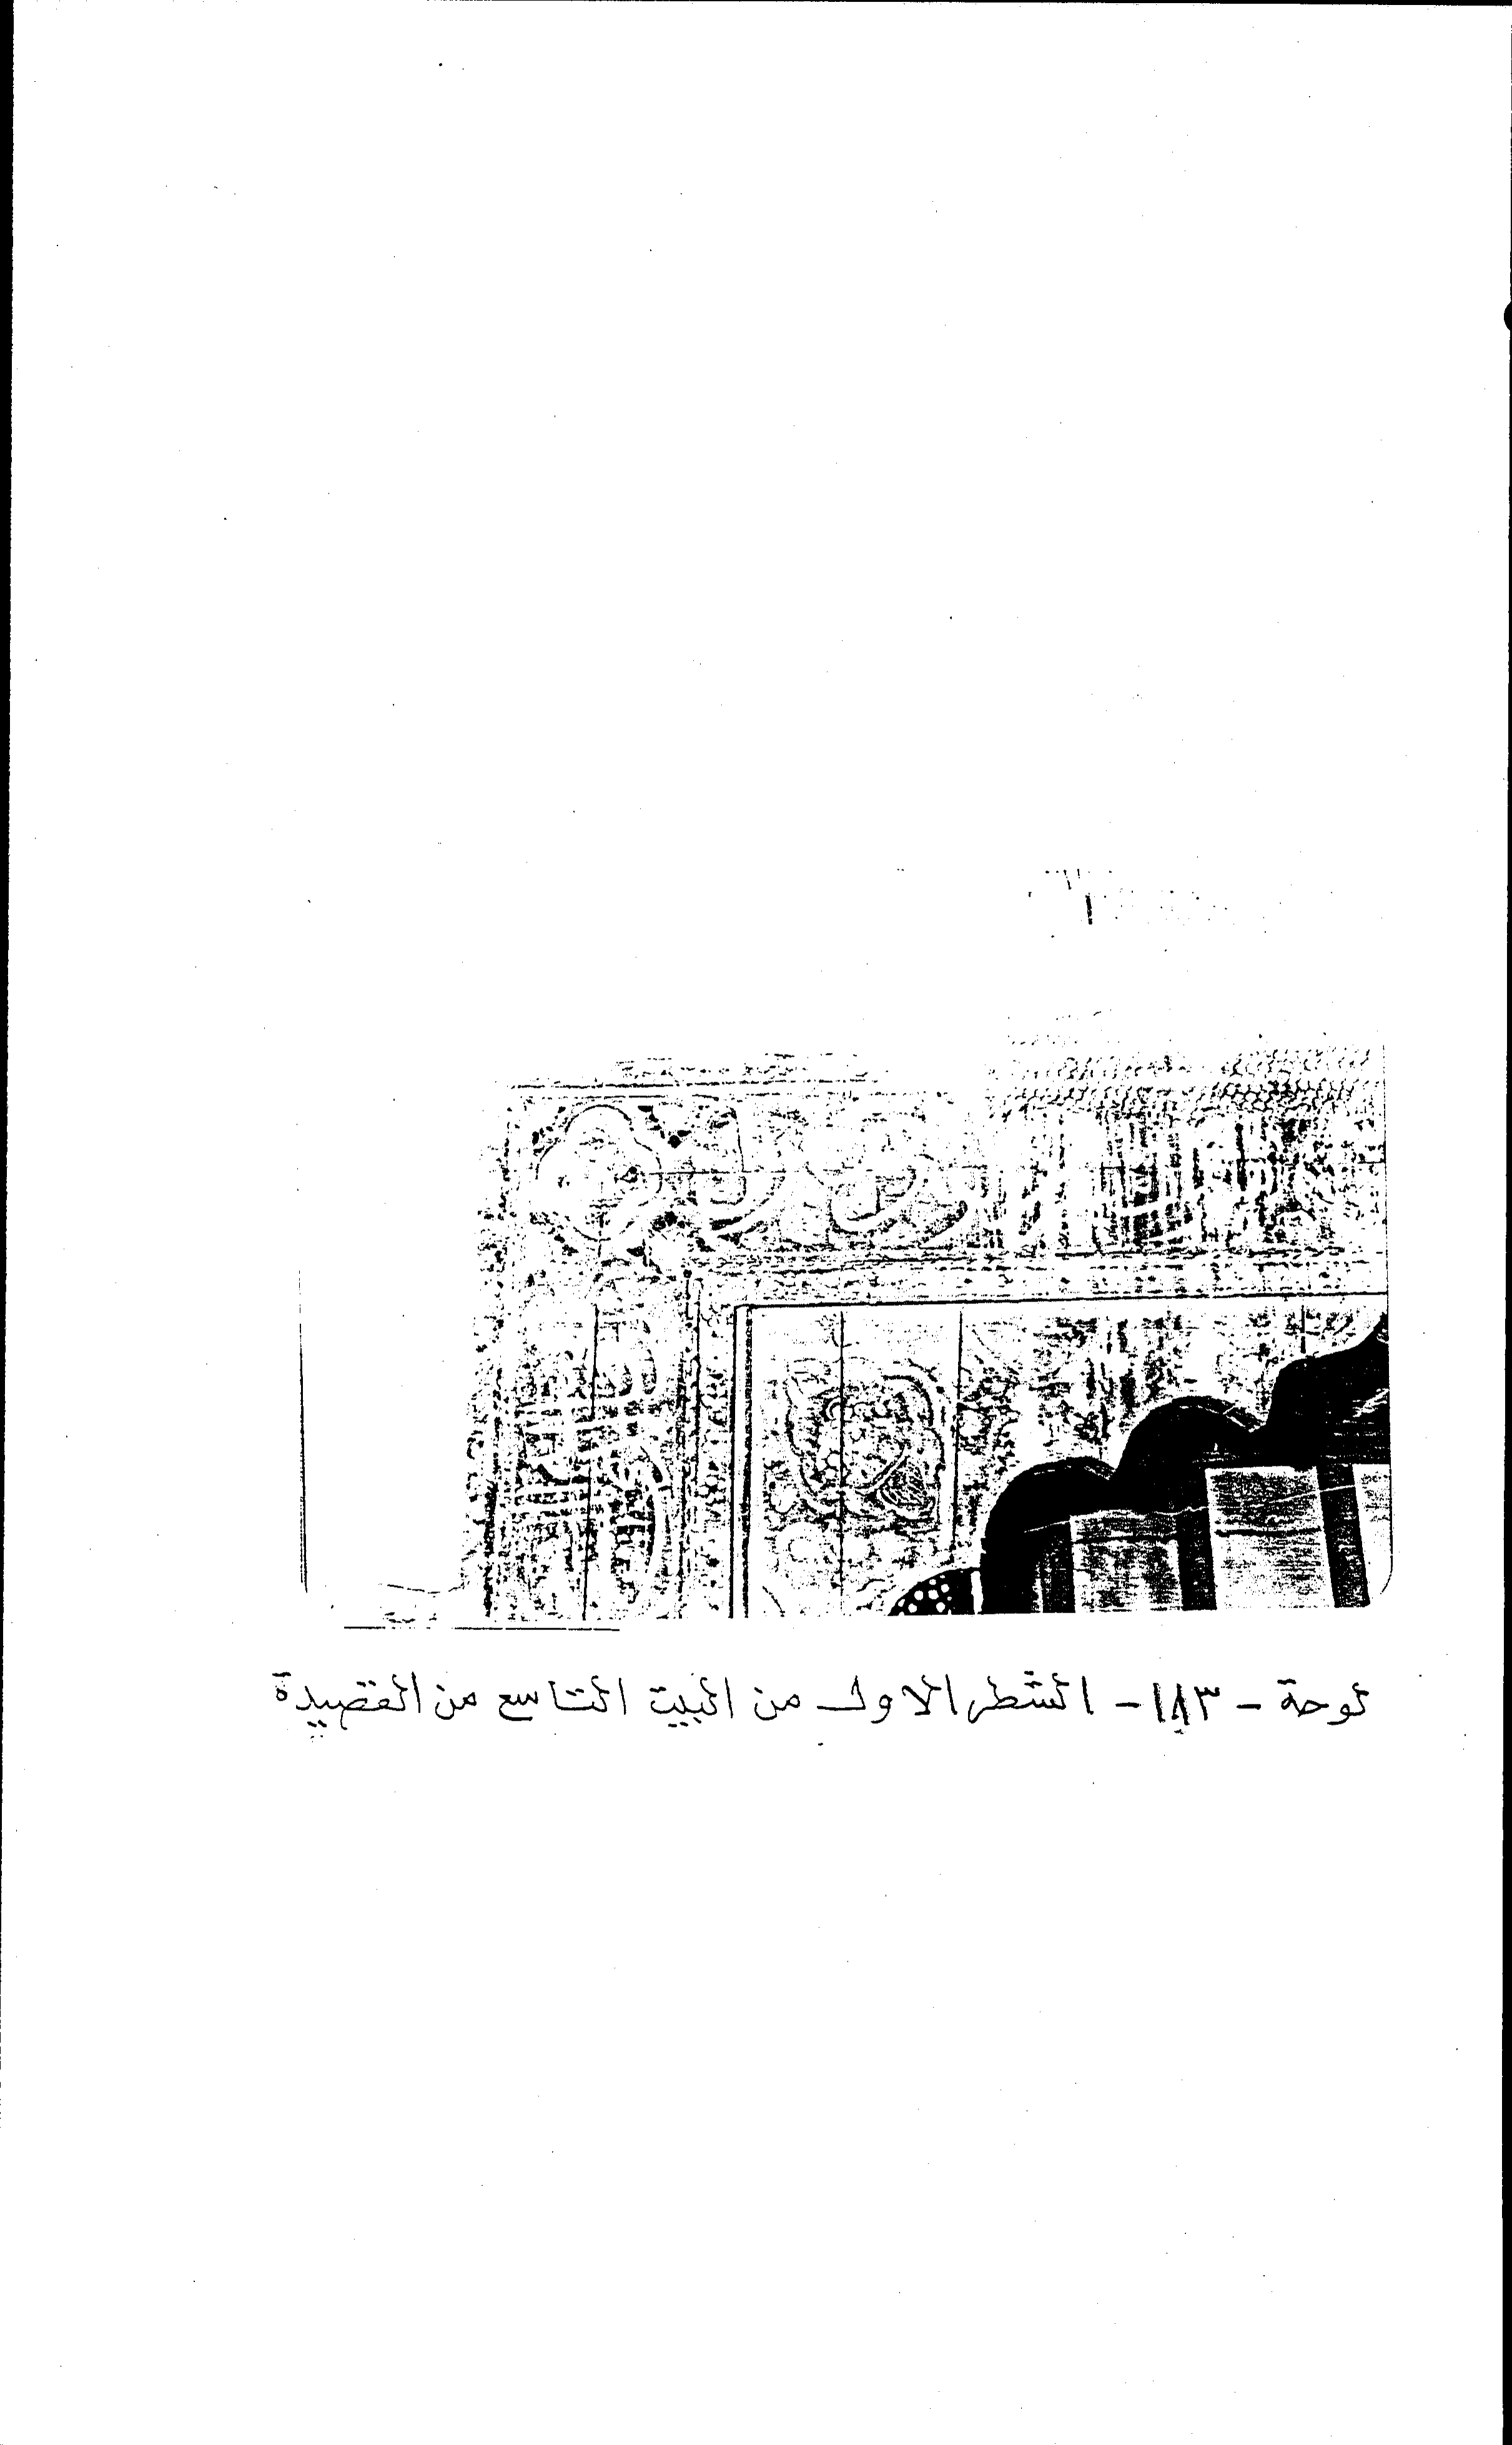 لوحة - ١٨٣ - الشطر الاول من البيت التاسع من القصيدة